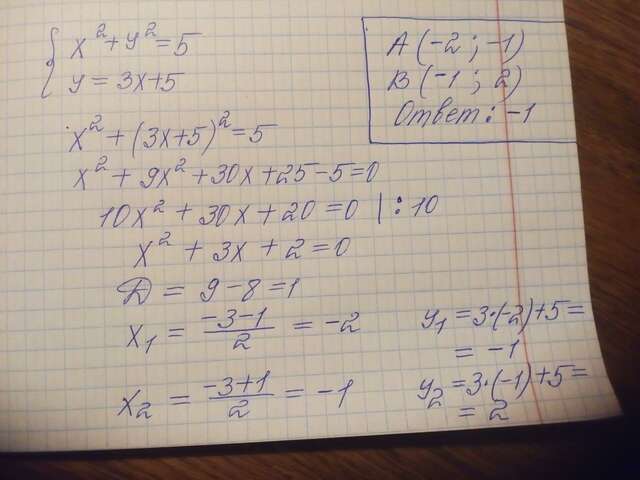 x² + y² = 5
y = 3x+5
A (-2 ; -1)
B (-1 ; 2)
Ответ: -1
x² + (3x+5)² = 5
x² + 9x² + 30x + 25 - 5 = 0
10x² + 30x + 20 = 0 | : 10
x² + 3x + 2 = 0
D = 9 - 8 = 1
x₁ = (-3-1)/2 = -2
y₁ = 3·(-2)+5 =
= -1
x₂ = (-3+1)/2 = -1
y₂ = 3·(-1)+5 =
= 2